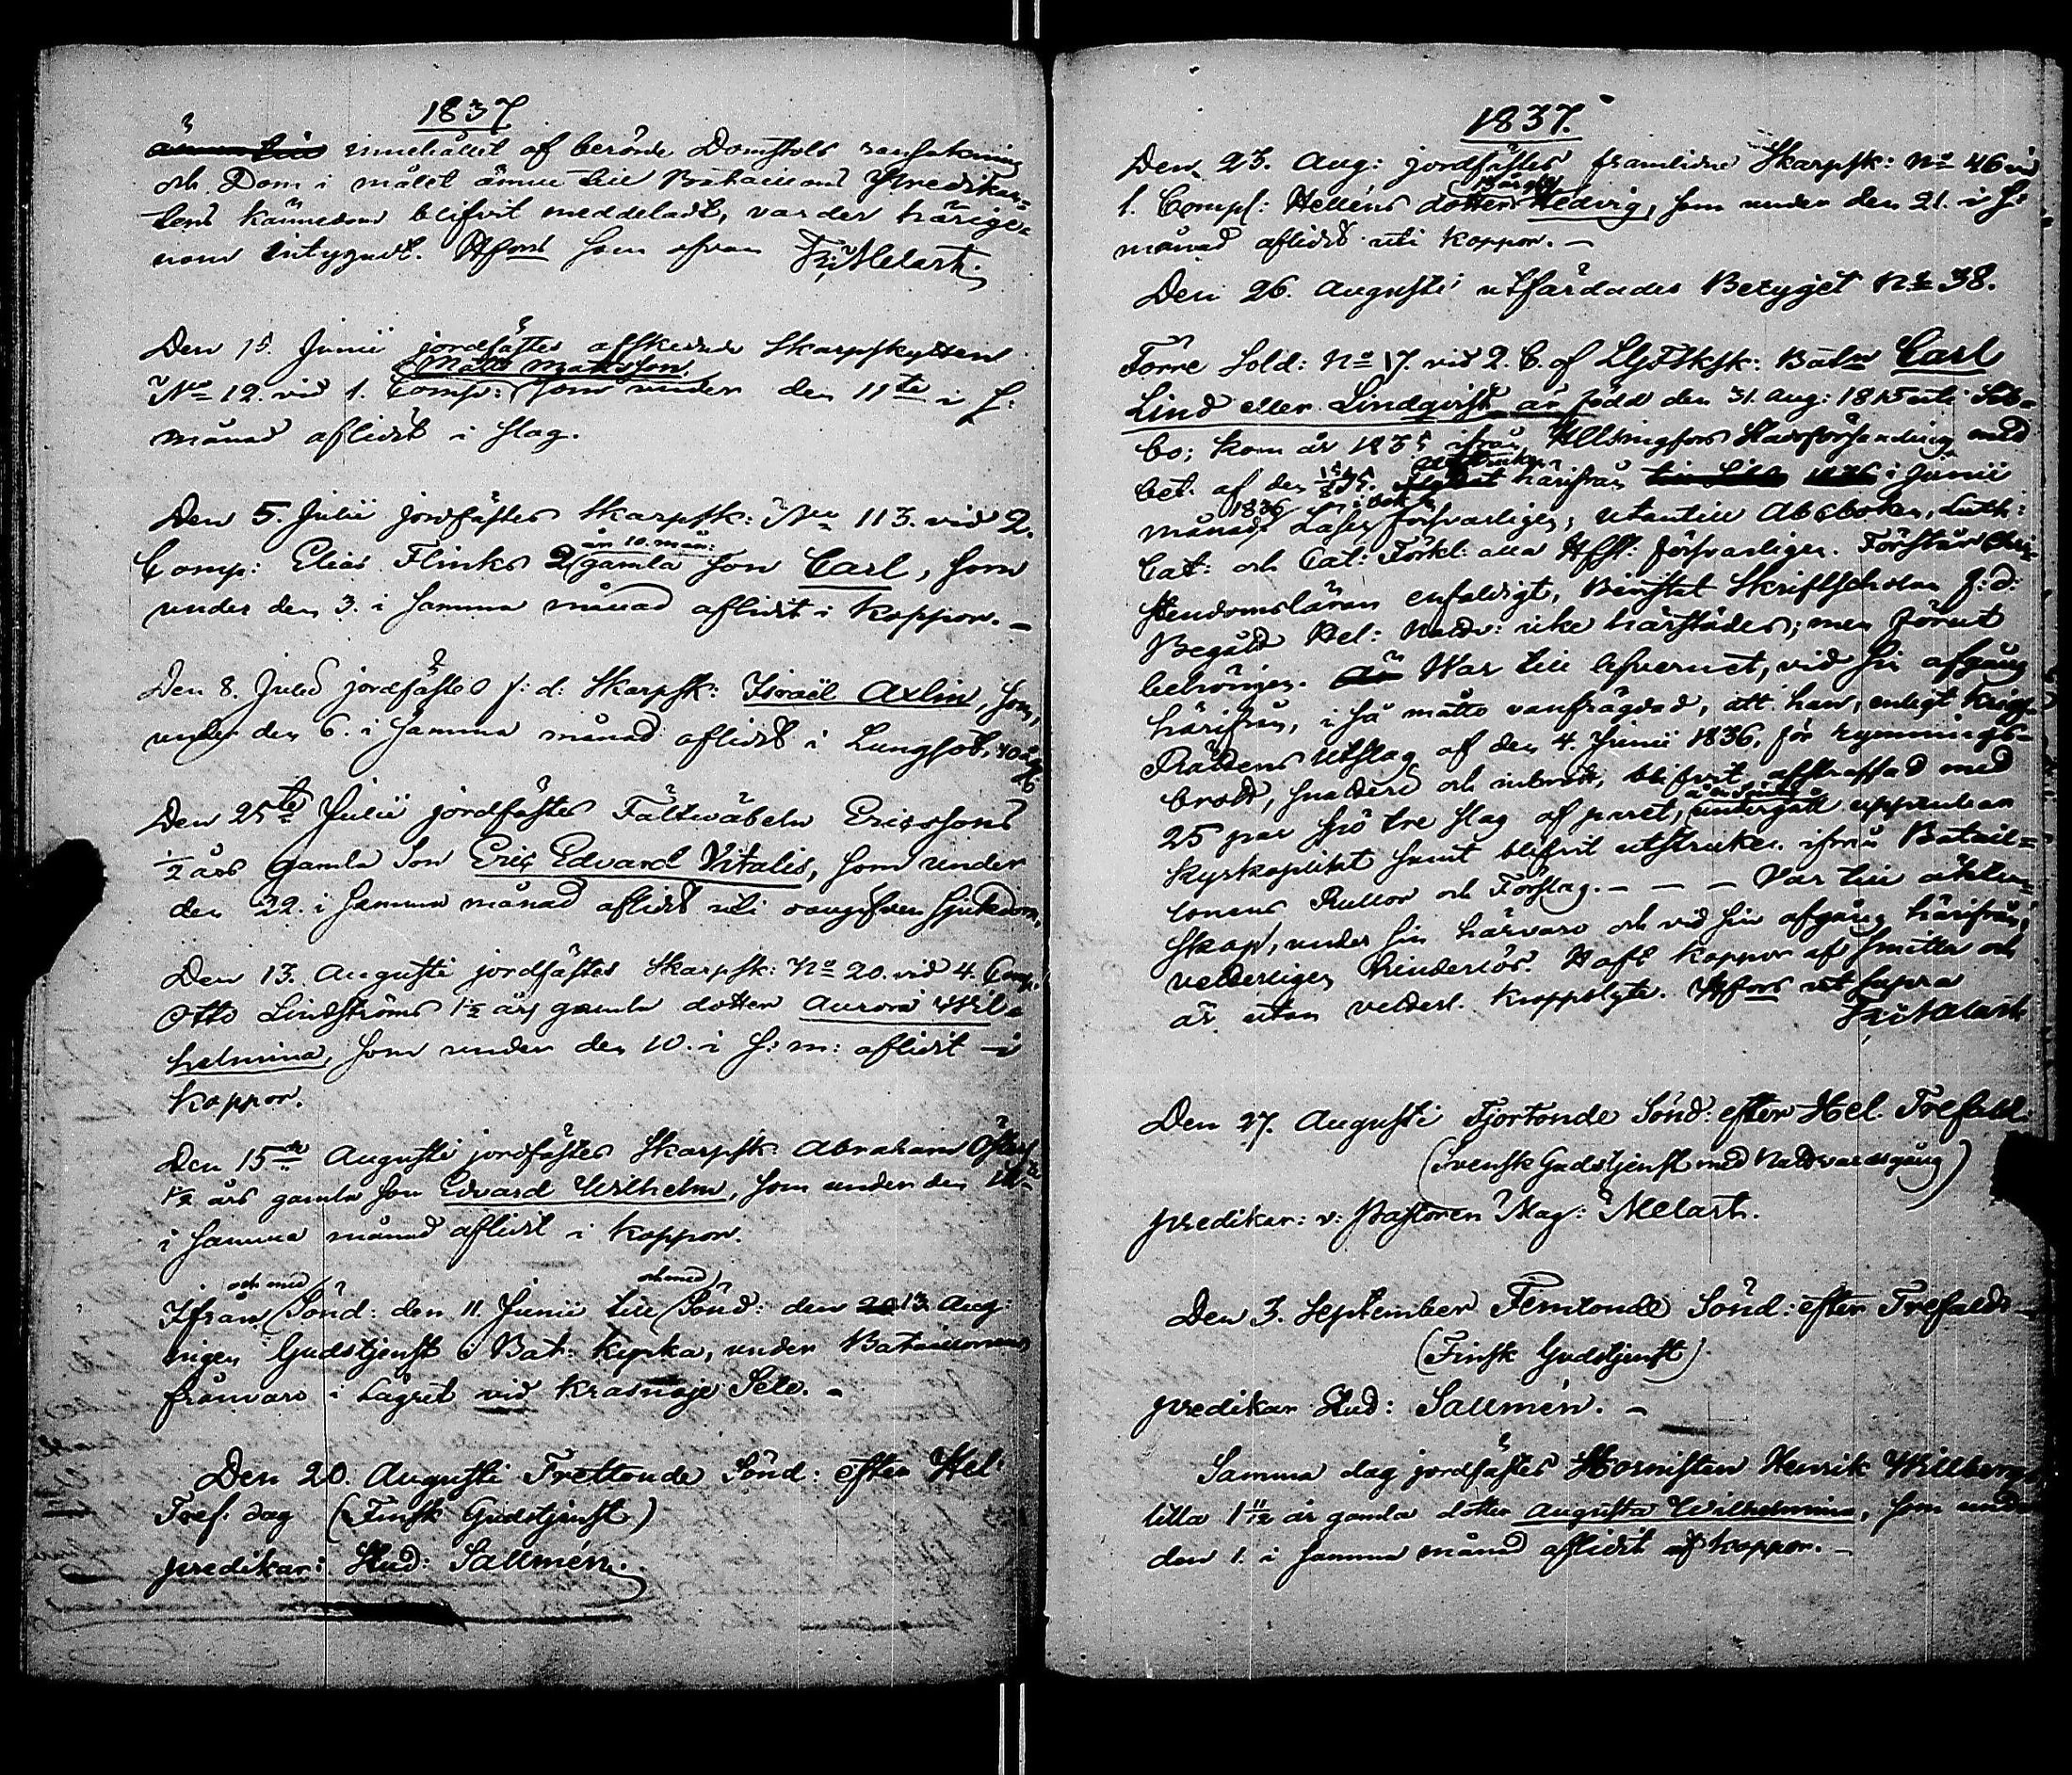 1837
innehållet af berörde Domstols ransakning
och Dom i målet ännu till Bataillons Predikan-
tens kännedom blifvit meddeladt, varder härige-
nom intygadt. Hfors som ofvan Fr: Melart.
Den 15. Junii jordfästes afskedade Skarpskytten
Matts Mattsson
No 12. vid 1. Comp: som under den 11te i s:
månad aflidit i slag.
Den 5. Julii jordfästes Skarpsk: No 113. vid 2.
10. mån:
Comp: Elias Flinks 2 gamla son Carl, som
under den 3. i samma månad aflidit i koppor. –
Den 8. Julii jordfästes f: d: Skarpsk: Israël Axlin, som,
under den 6. i samma månad aflidit i Lungsot,
Den 25te Julii jordfästes Fältwäbeln Ericssons
½ års gamla Son Eric Edvard Vitalis, som under
den 22. i samma månad aflidit uti oangifven sjukdom.
Den 13. Augusti jordfästes Skarpsk: No 20. vid 4. Comp.
Otto Lindströms 1½ års gamla dotter Aurora Wil-
helmina, som under den 10. i s: m: aflidit i
koppor.
Den 15de Augusti jordfästes Skarpsk: Abraham
½ års gamla son Edvard Wilhelm, som under den
i samma månad aflidit i koppor.
och med och med
Ifrån Sönd: den 11. Junii till Sönd: den 20 13. Aug:
ingen Gudstjenst i Bat: Kyrka, under Bataillonens
frånvaro i Lägret vid Krasnoje Selo. –
Den 20. Augusti Trettonde Sönd: efter Hel:
Tref. dag (Finsk Gudstjenst)
predikar: Stud: Sallmén.
1837.
Den 23. Aug: jordfästes framlidne Skarpsk: No 46 vid
1. Comp: Helléns dotter Hedvig, som under den 21. i s:
månad aflidit uti koppor. –
Den 26. Augusti utfärdades Betyget No 38.
Förre Sold: No 17. vid 2. C. af Bat:n Carl
Lind eller Lindqvist är född den 31. Aug: 1815 uti Sib-
bo; kom år 1835 ifrån Helsingfors Stadsförsamling med
utstruken
bet. af den härifrån i Junii
1836 i bok
månad. Läser försvarligen, utantill Abcboken, Luth:
Cat: och Cat: Förkl: alla försvarligen. Förstår Chri-
stendomsläran enfaldigt, Bevistat Skriftscholan s: d:
Begått Hel: Nattv: icke härstädes; men förut
behörigen. Är War till lefvernet, vid sin afgång
härifrån, i så måtto vanfrägdad, att han, enligt Krigs-
Rättens Utslag af den 4. Junii 1836, för rymnings-
brott, snatteri och inbrott, blifvit afstraffad med
25 par spö tre slag af paret, undergått uppenbar
kyrkoplikt samt blifvit utstruken ifrån Batail-
lonens Rullor och Förslag. – – – Var till äkten-
skap, under sin härvaro och vid sin afgång härifrån,
vetterligen hinderlös. Haft koppor af smitta och
är utan vetterl. kroppslyte. Hfors ut supra
Fr: Melart.
Den 27. Augusti Fjortonde Sönd: efter Hel. Trefald:
(Svensk Gudstjenst med Nattvardsgång)
predikar: v: Pastoren Mag: Melart.
Den 3. September Femtonde Sönd: efter Trefalds
(Finsk Gudstjenst)
predikar Stud: Sallmén. –
Samma dag jordfästes Hornisten Henrik Willbergs
lilla 1 11/12 år gamla dotter Augusta Wilhelmina, som under
den 1. i samma månad aflidit af koppor. –